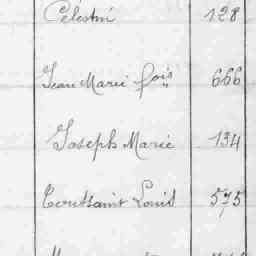 Célestin 128
Jean Marie fois 666
Joseph Marie 134
Toussaint Louis 575